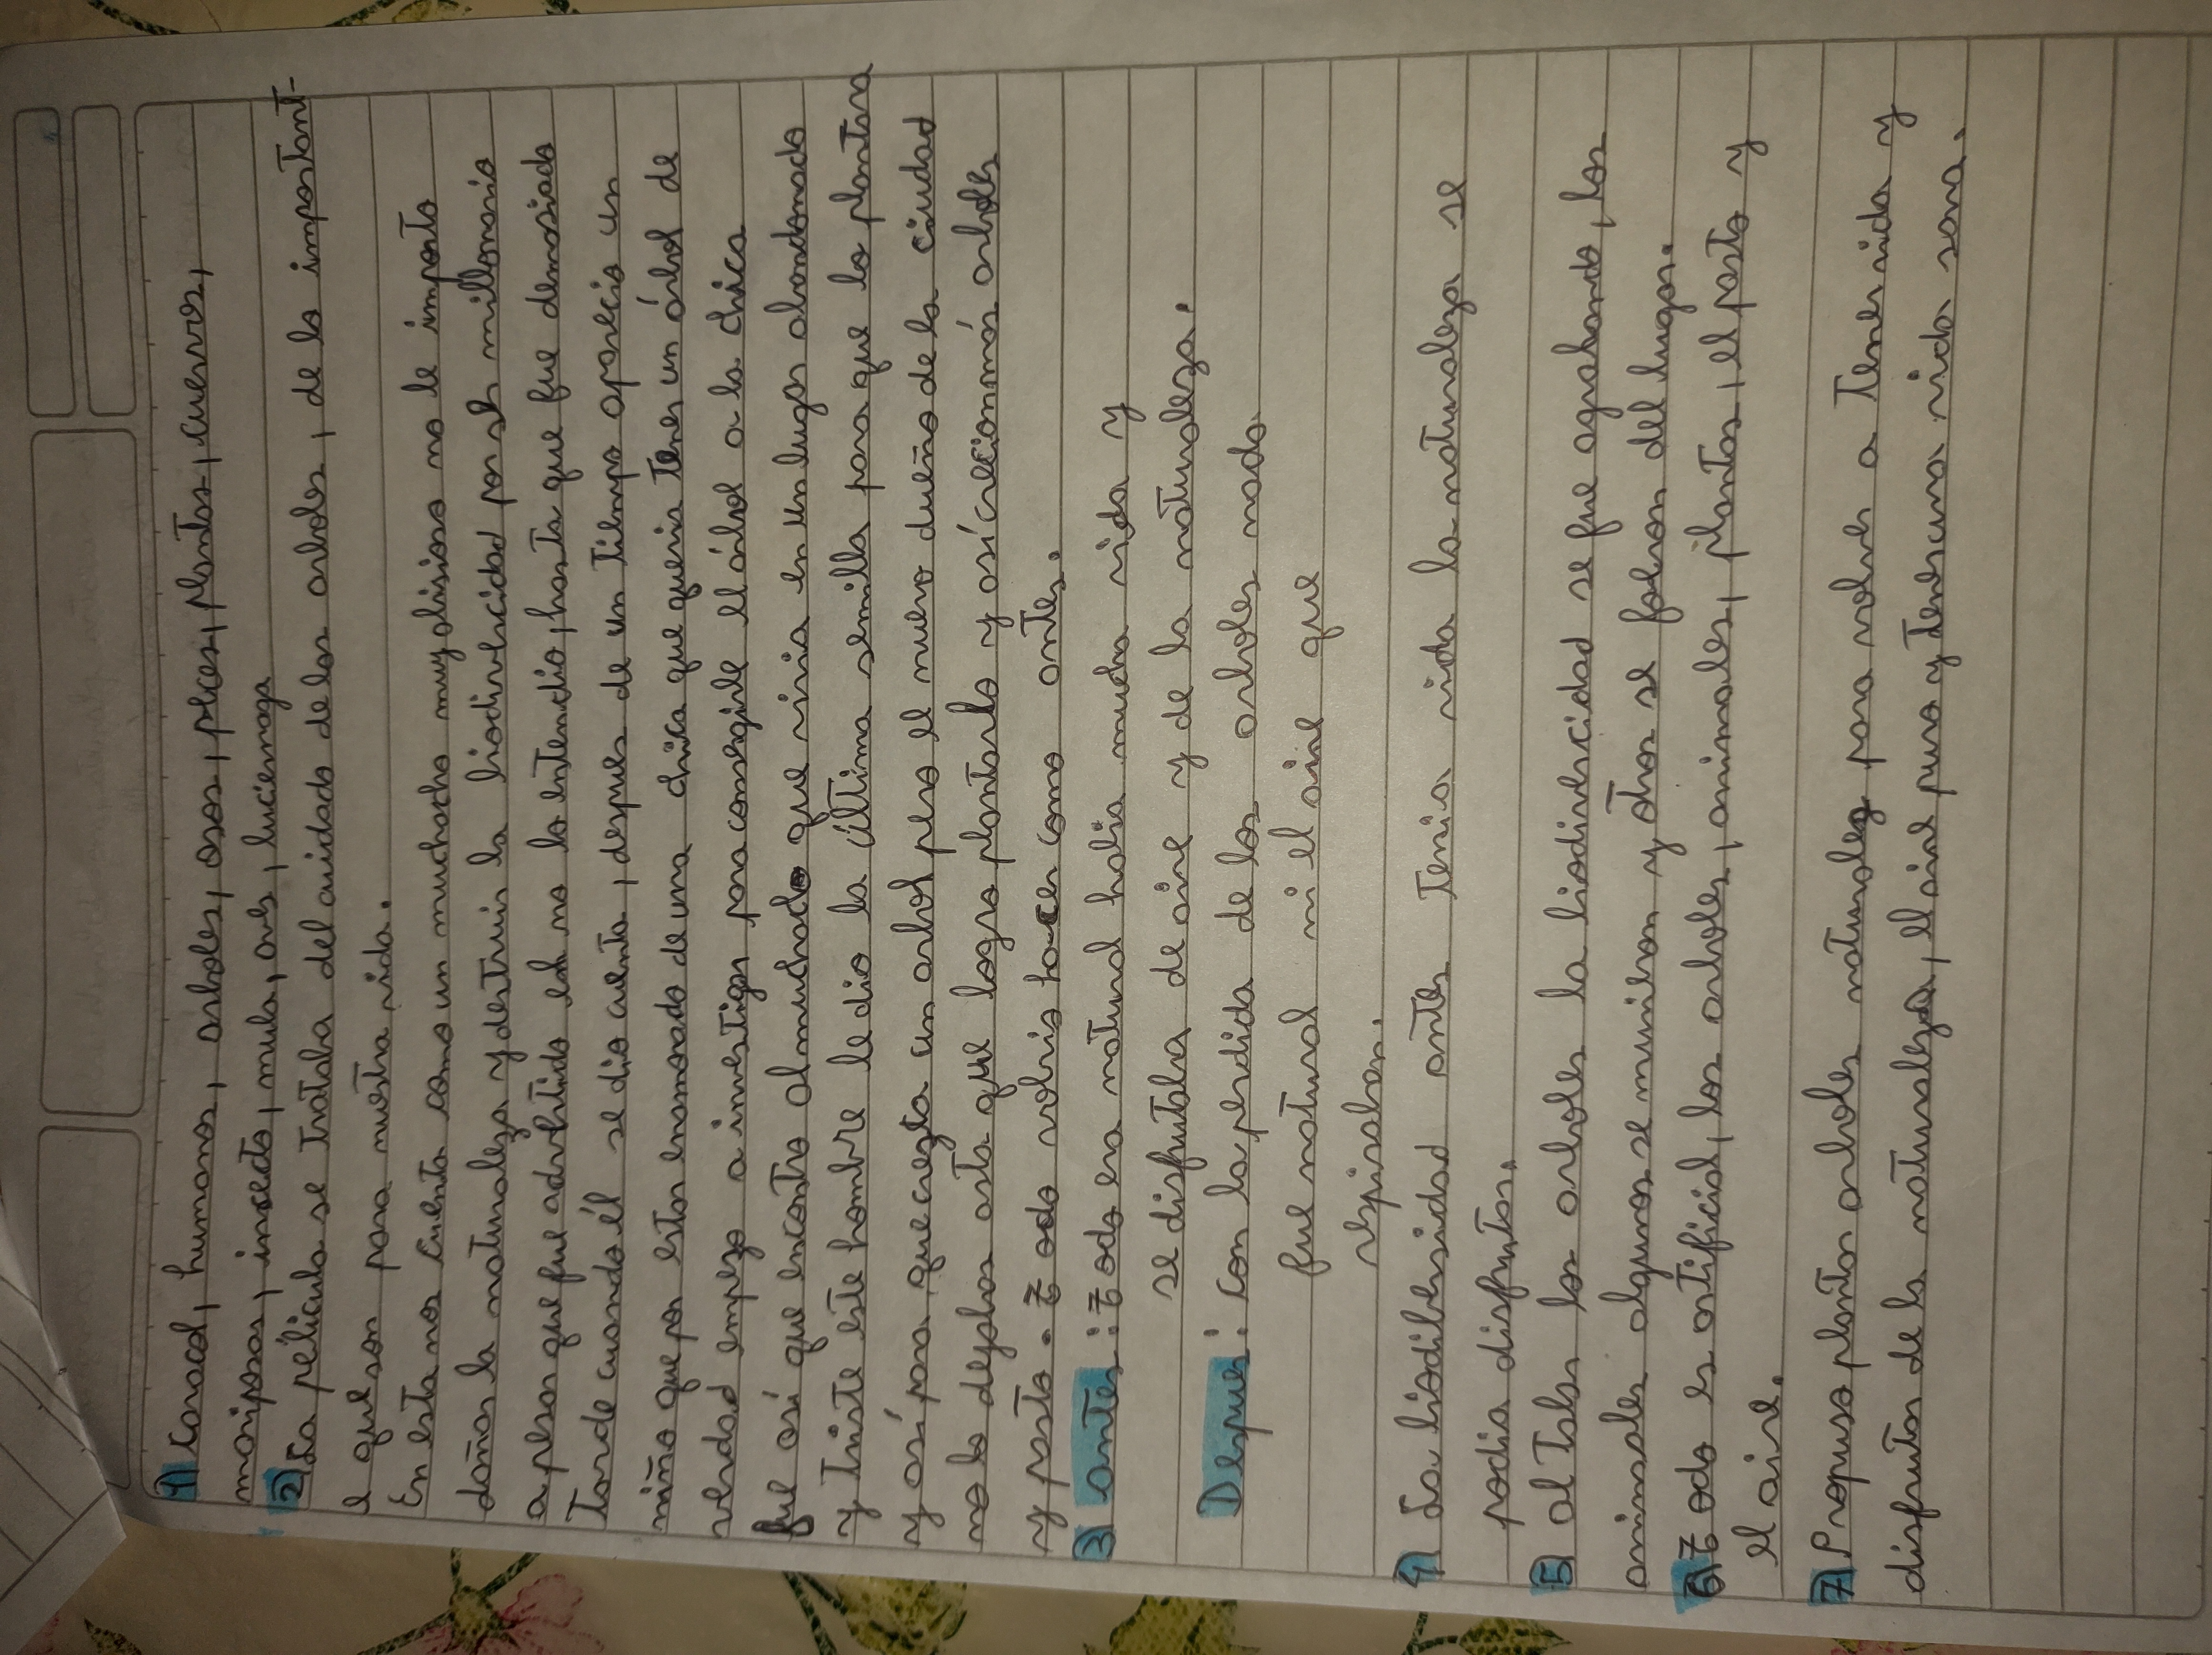 1) Caracol, humanos, arboles, osos, peces, plantas, cuervos,
mariposas, insecto, mula, aves, luciernaga
2) La pelicula se trataba del cuidado de los arboles, de lo important-
e que son para nuestra vida.
En esta nos cuenta como un muchacho muy obisioso no le importo
dañar la naturaleza y destruir la biodivercidad por ser millonario
a pesar que fue advertido el no lo entendio, hasta que fue demosiado
Tarde cuando él se dio cuenta, despues de un tiempo aparecio un
niño que por estar enamorado de una chica que queria tener un árbol de
verdad empezo a investigar para conseguirle el árbol a la chica
fue así que encontro al muchacho que vivia en un lugar abandonado
y triste este hombre le dio la última semilla para que la plantara
y así para que crezta un arbol pero el nuevo dueño de la ciudad
no lo dejaba asta que logro plantarlo y así crecionmás arboles
y pasto. Todo volvio hacer como antes.
3) antes: Todo era natural habia mucha vida y
se disfrutaba de aire y de la naturaleza.
Despues: Con la perdida de los arboles nada
fue natural ni el aire que
respiraban.
4) La biodibersidad antes Tenia vida la naturaleza se
podia disfrutar.
5) al Talar los arboles la biodivercidad se fue agrabando, los
animales algunos se murieron y otros se fueron del lugar.
6) Todo es artificial, los arboles, animales, plantas, el pasto y
el aire.
7) Propuso plantar arboles naturales para volver a Tener vida y
disfrutar de la naturaleza, el aire puro y tener una vida sana.